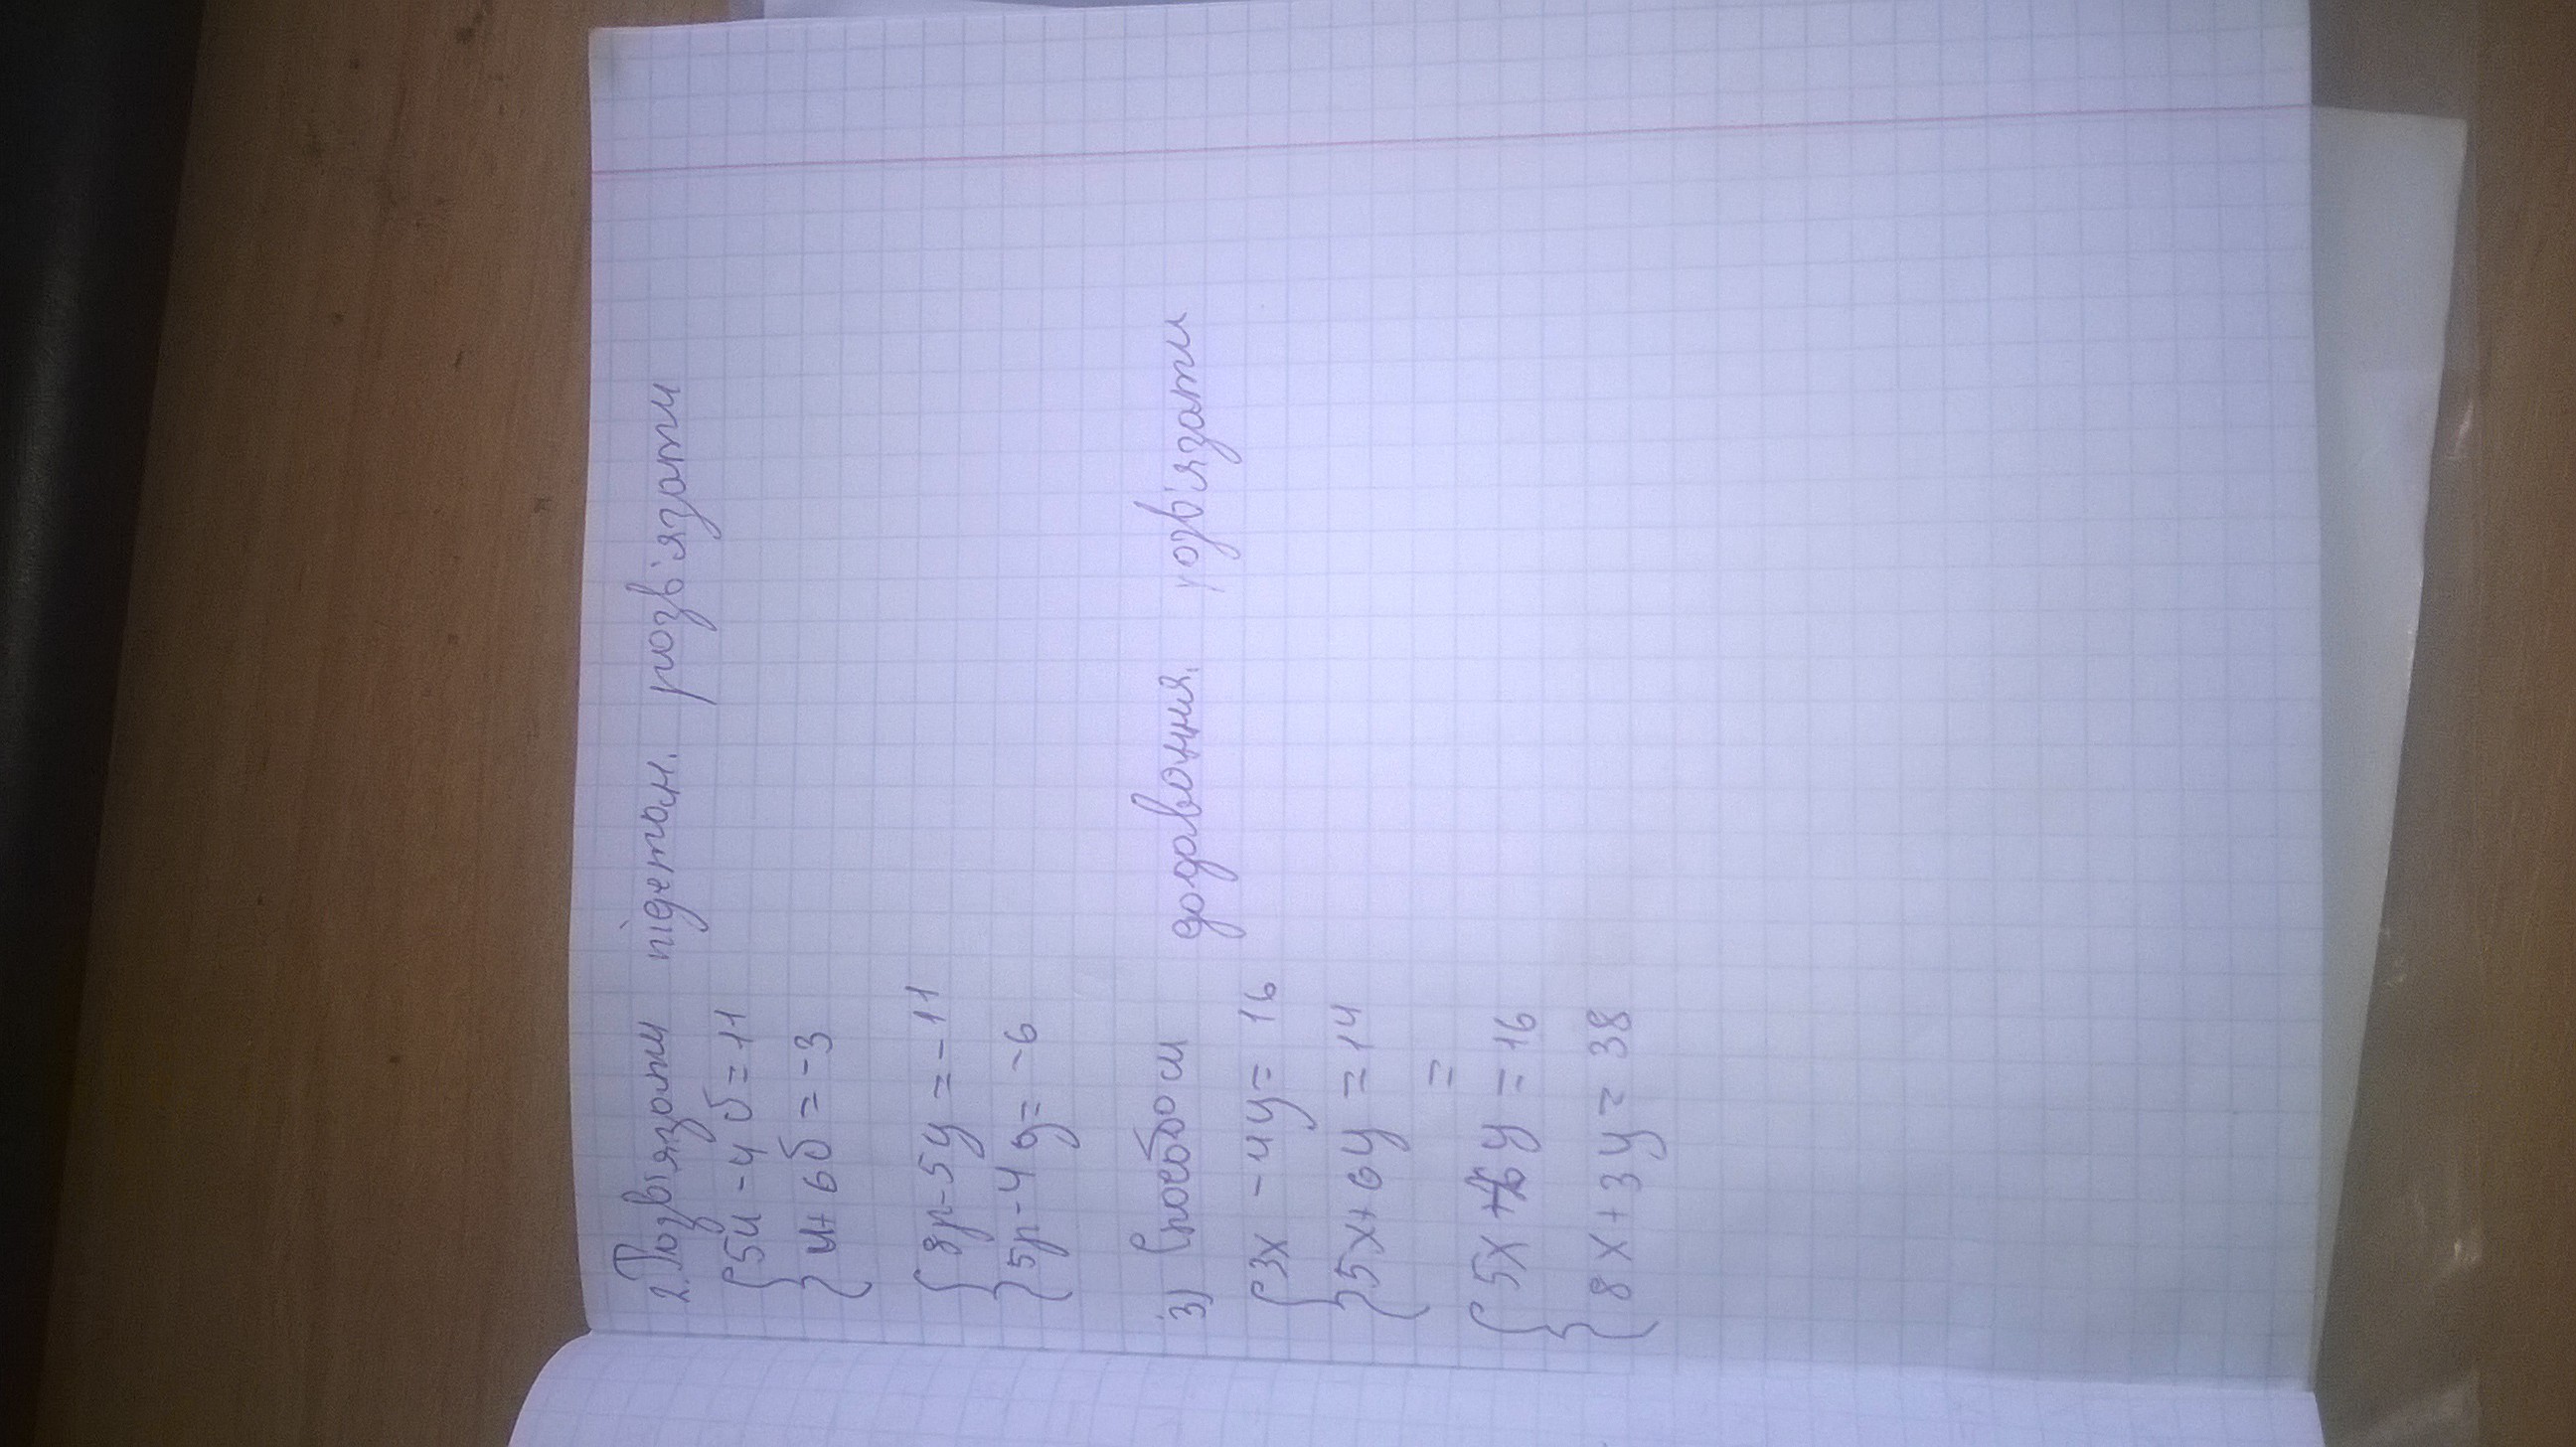 2. Розв'язати підстан. розв'язати
{5u - 4б = 11
{u + 6б = -3
{8p - 5y = -11
{5p - 4g = -6
3) Способом додавання. розв'язати
{3x - 4y = 16
{5x + 6y = 14
=
{5x + y = 16
{8x + 3y = 38